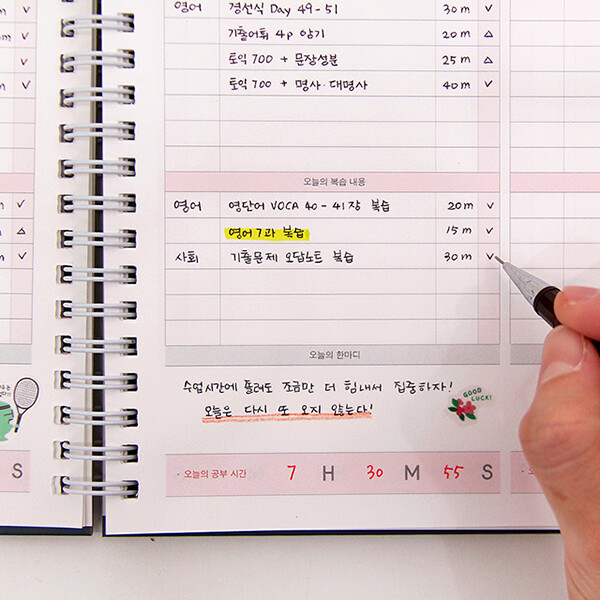 영어 경선식 Day 49-51 30m ✓
기출어휘 4p 암기 20m △
토익 700 + 문장성분 25m △
토익 700 + 명사·대명사 40m ✓
오늘의 복습 내용
영어 영단어 VOCA 40-41장 복습 20m ✓
영어 7과 복습 15m ✓
사회 기출문제 오답노트 복습 30m ✓
오늘의 한마디
수업시간에 졸려도 조금만 더 힘내서 집중하자!
오늘은 다시 또 오지 않는다!
GOOD LUCK!
· 오늘의 공부 시간 7 H 30 M 55 S